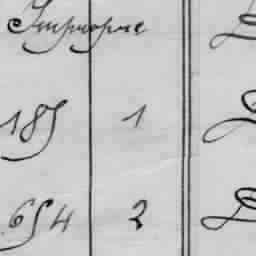 Impropre
185 1
654 2